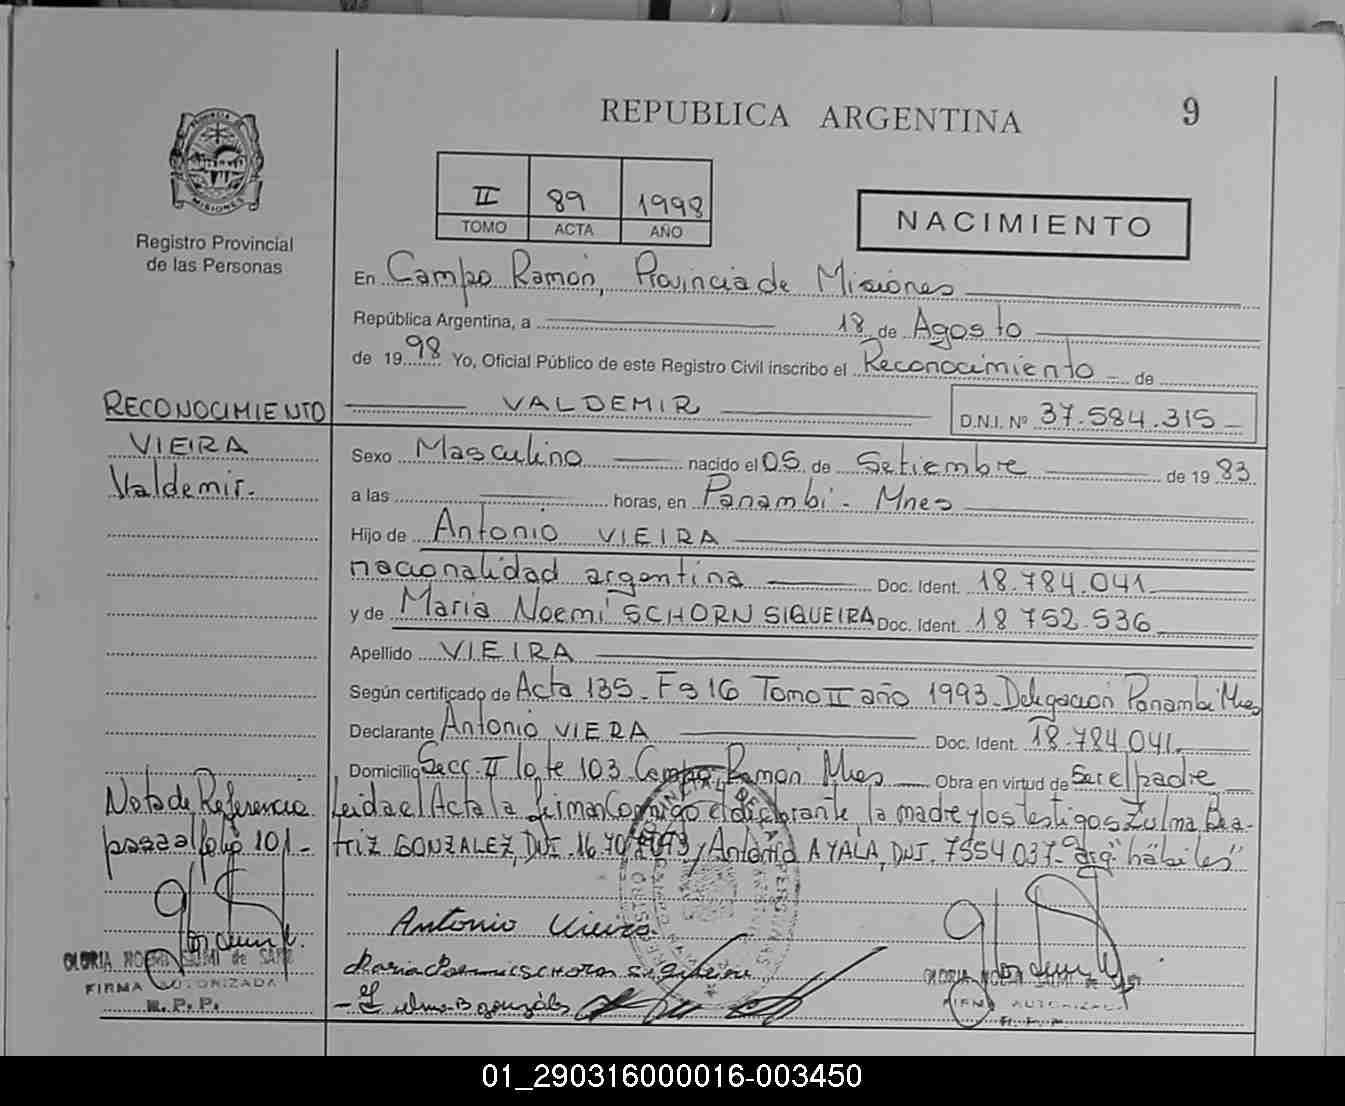 REPUBLICA ARGENTINA
9
II 89 1998
TOMO ACTA AÑO
NACIMIENTO
PROVINCIA DE MISIONES
Registro Provincial
de las Personas
En Campo Ramón, Provincia de Misiones
República Argentina, a 18 de Agosto
de 1998 Yo, Oficial Público de este Registro Civil inscribo el Reconocimiento de
VALDEMIR D.N.I. Nº 37.584.315
RECONOCIMIENTO
VIEIRA
Valdemir.
Sexo Masculino nacido el 05 de Setiembre de 1983
a las horas, en Panambi - Mnes
Hijo de Antonio VIEIRA
nacionalidad argentina Doc. Ident. 18.784.041
y de Maria Noemi SCHORN SIQUEIRA Doc. Ident. 18 752.536
Apellido VIEIRA
Según certificado de Acta 135 - Fs 16 Tomo II año 1993 - Delegación Panambi Mnes
Declarante Antonio VIERA Doc. Ident. 18.784.041
Domicilio Secc. II lote 103 Campo Ramon Mnes Obra en virtud de Ser el padre
Nota de Referencia
pasa al folio 101-
Leida el Acta la firman Conmigo el declarante la madre y los testigos Zulma Bea-
triz GONZALEZ, DNI. y Antonio AYALA, DNI. 7554037 - arg. "hábiles"
Antonio Vieira
SCHORN
GLORIA NOEMI de
FIRMA AUTORIZADA
R. P. P.
GLORIA NOEMI de
FIRMA AUTORIZADA
R. P. P.
01_290316000016-003450